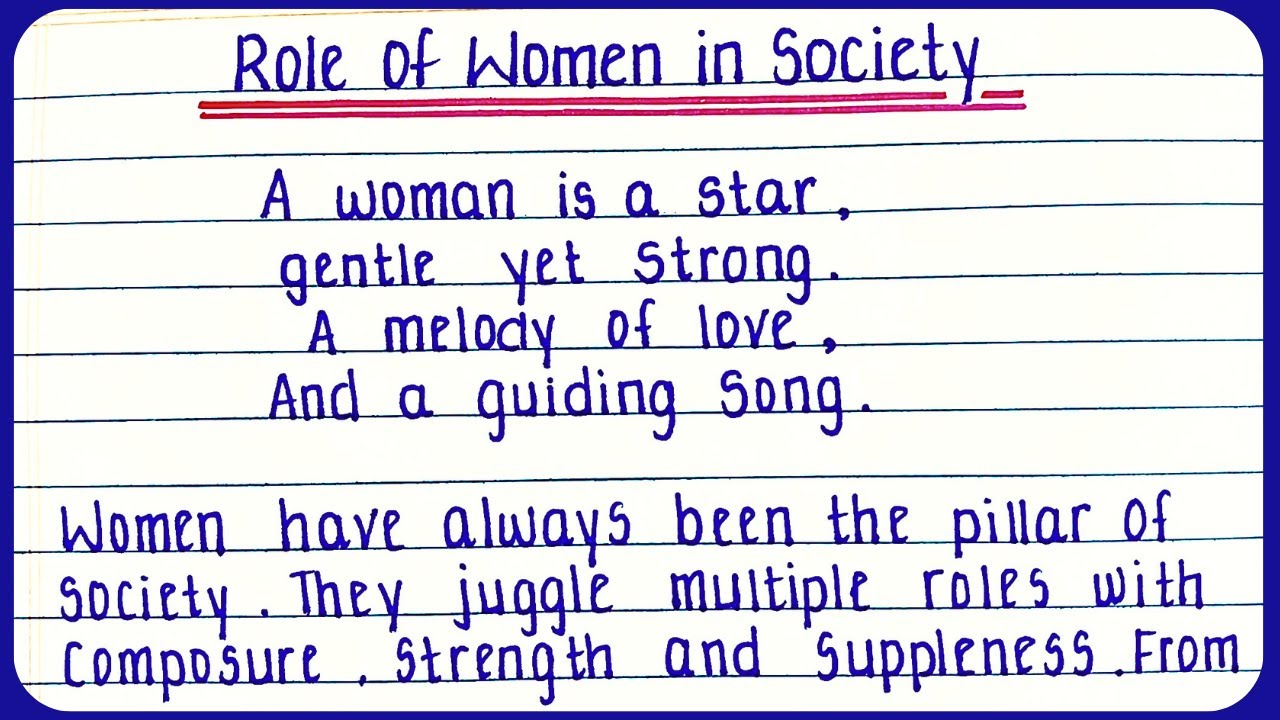 Role of Women in Society
A woman is a star,
gentle yet strong.
A melody of love,
And a guiding song.
Women have always been the pillar of
society. They juggle multiple roles with
composure, strength and suppleness. From